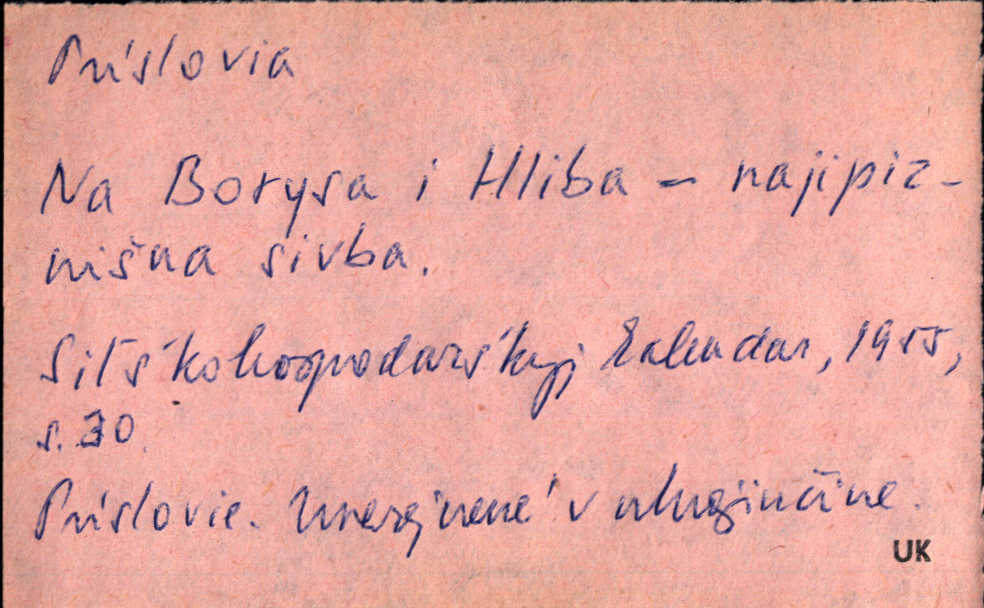 Príslovia
Na Borysa i Hliba – najipiz-
nišna sivba.
Siľśkohospodarśkyj kalendar, 1955,
s. 30.
Príslovie. Uverejnené v ukrajinčine.
UK